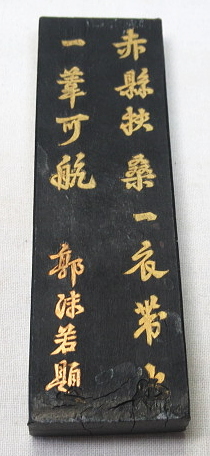 赤縣扶桑一衣帶水
一葦可航 郭沫若題